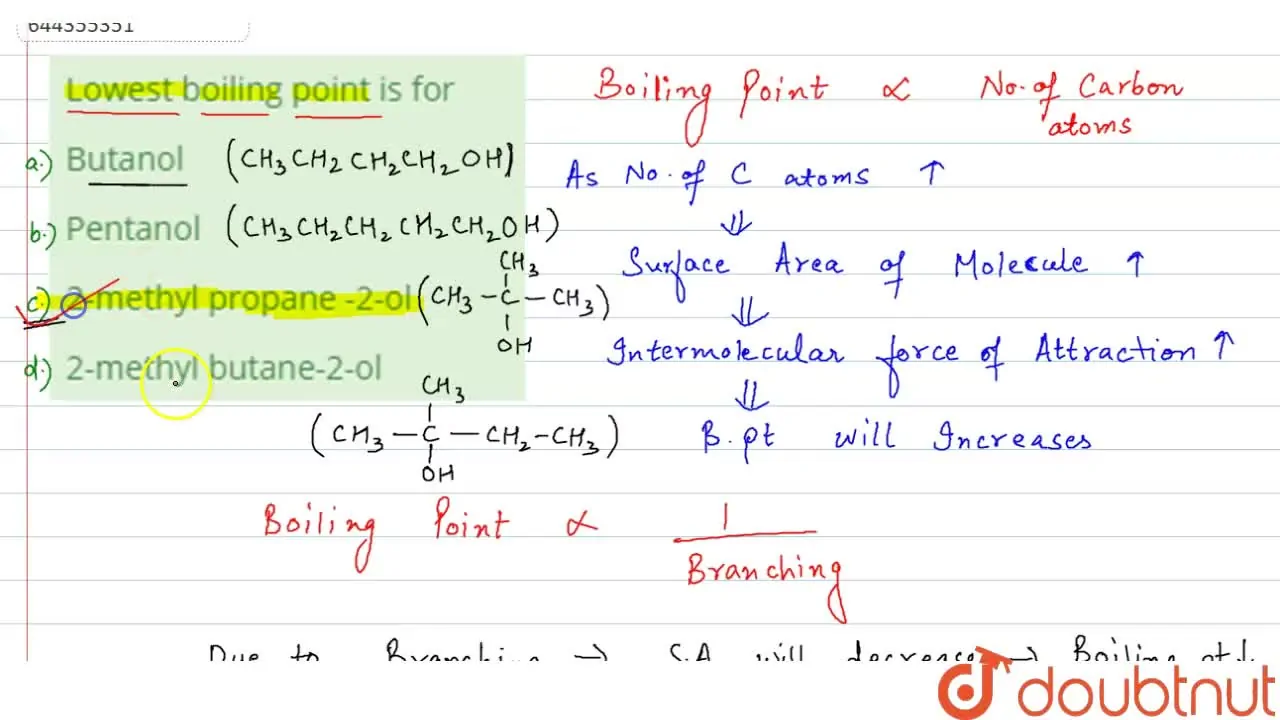 644355351
Lowest boiling point is for
a.) Butanol (CH3CH2CH2CH2OH)
b.) Pentanol (CH3CH2CH2CH2CH2OH)
c.) 2-methyl propane -2-ol (CH3 — C — CH3)
CH3
OH
d.) 2-methyl butane-2-ol
CH3
(CH3 — C — CH2 — CH3)
OH
Boiling Point ∝ No. of Carbon
atoms
As No. of C atoms ↑
⇓
Surface Area of Molecule ↑
⇓
Intermolecular force of Attraction ↑
⇓
B.pt will Increases
Boiling Point ∝ 1
Branching
Due to Branching → S.A will decrease → Boiling pt ↓
doubtnut